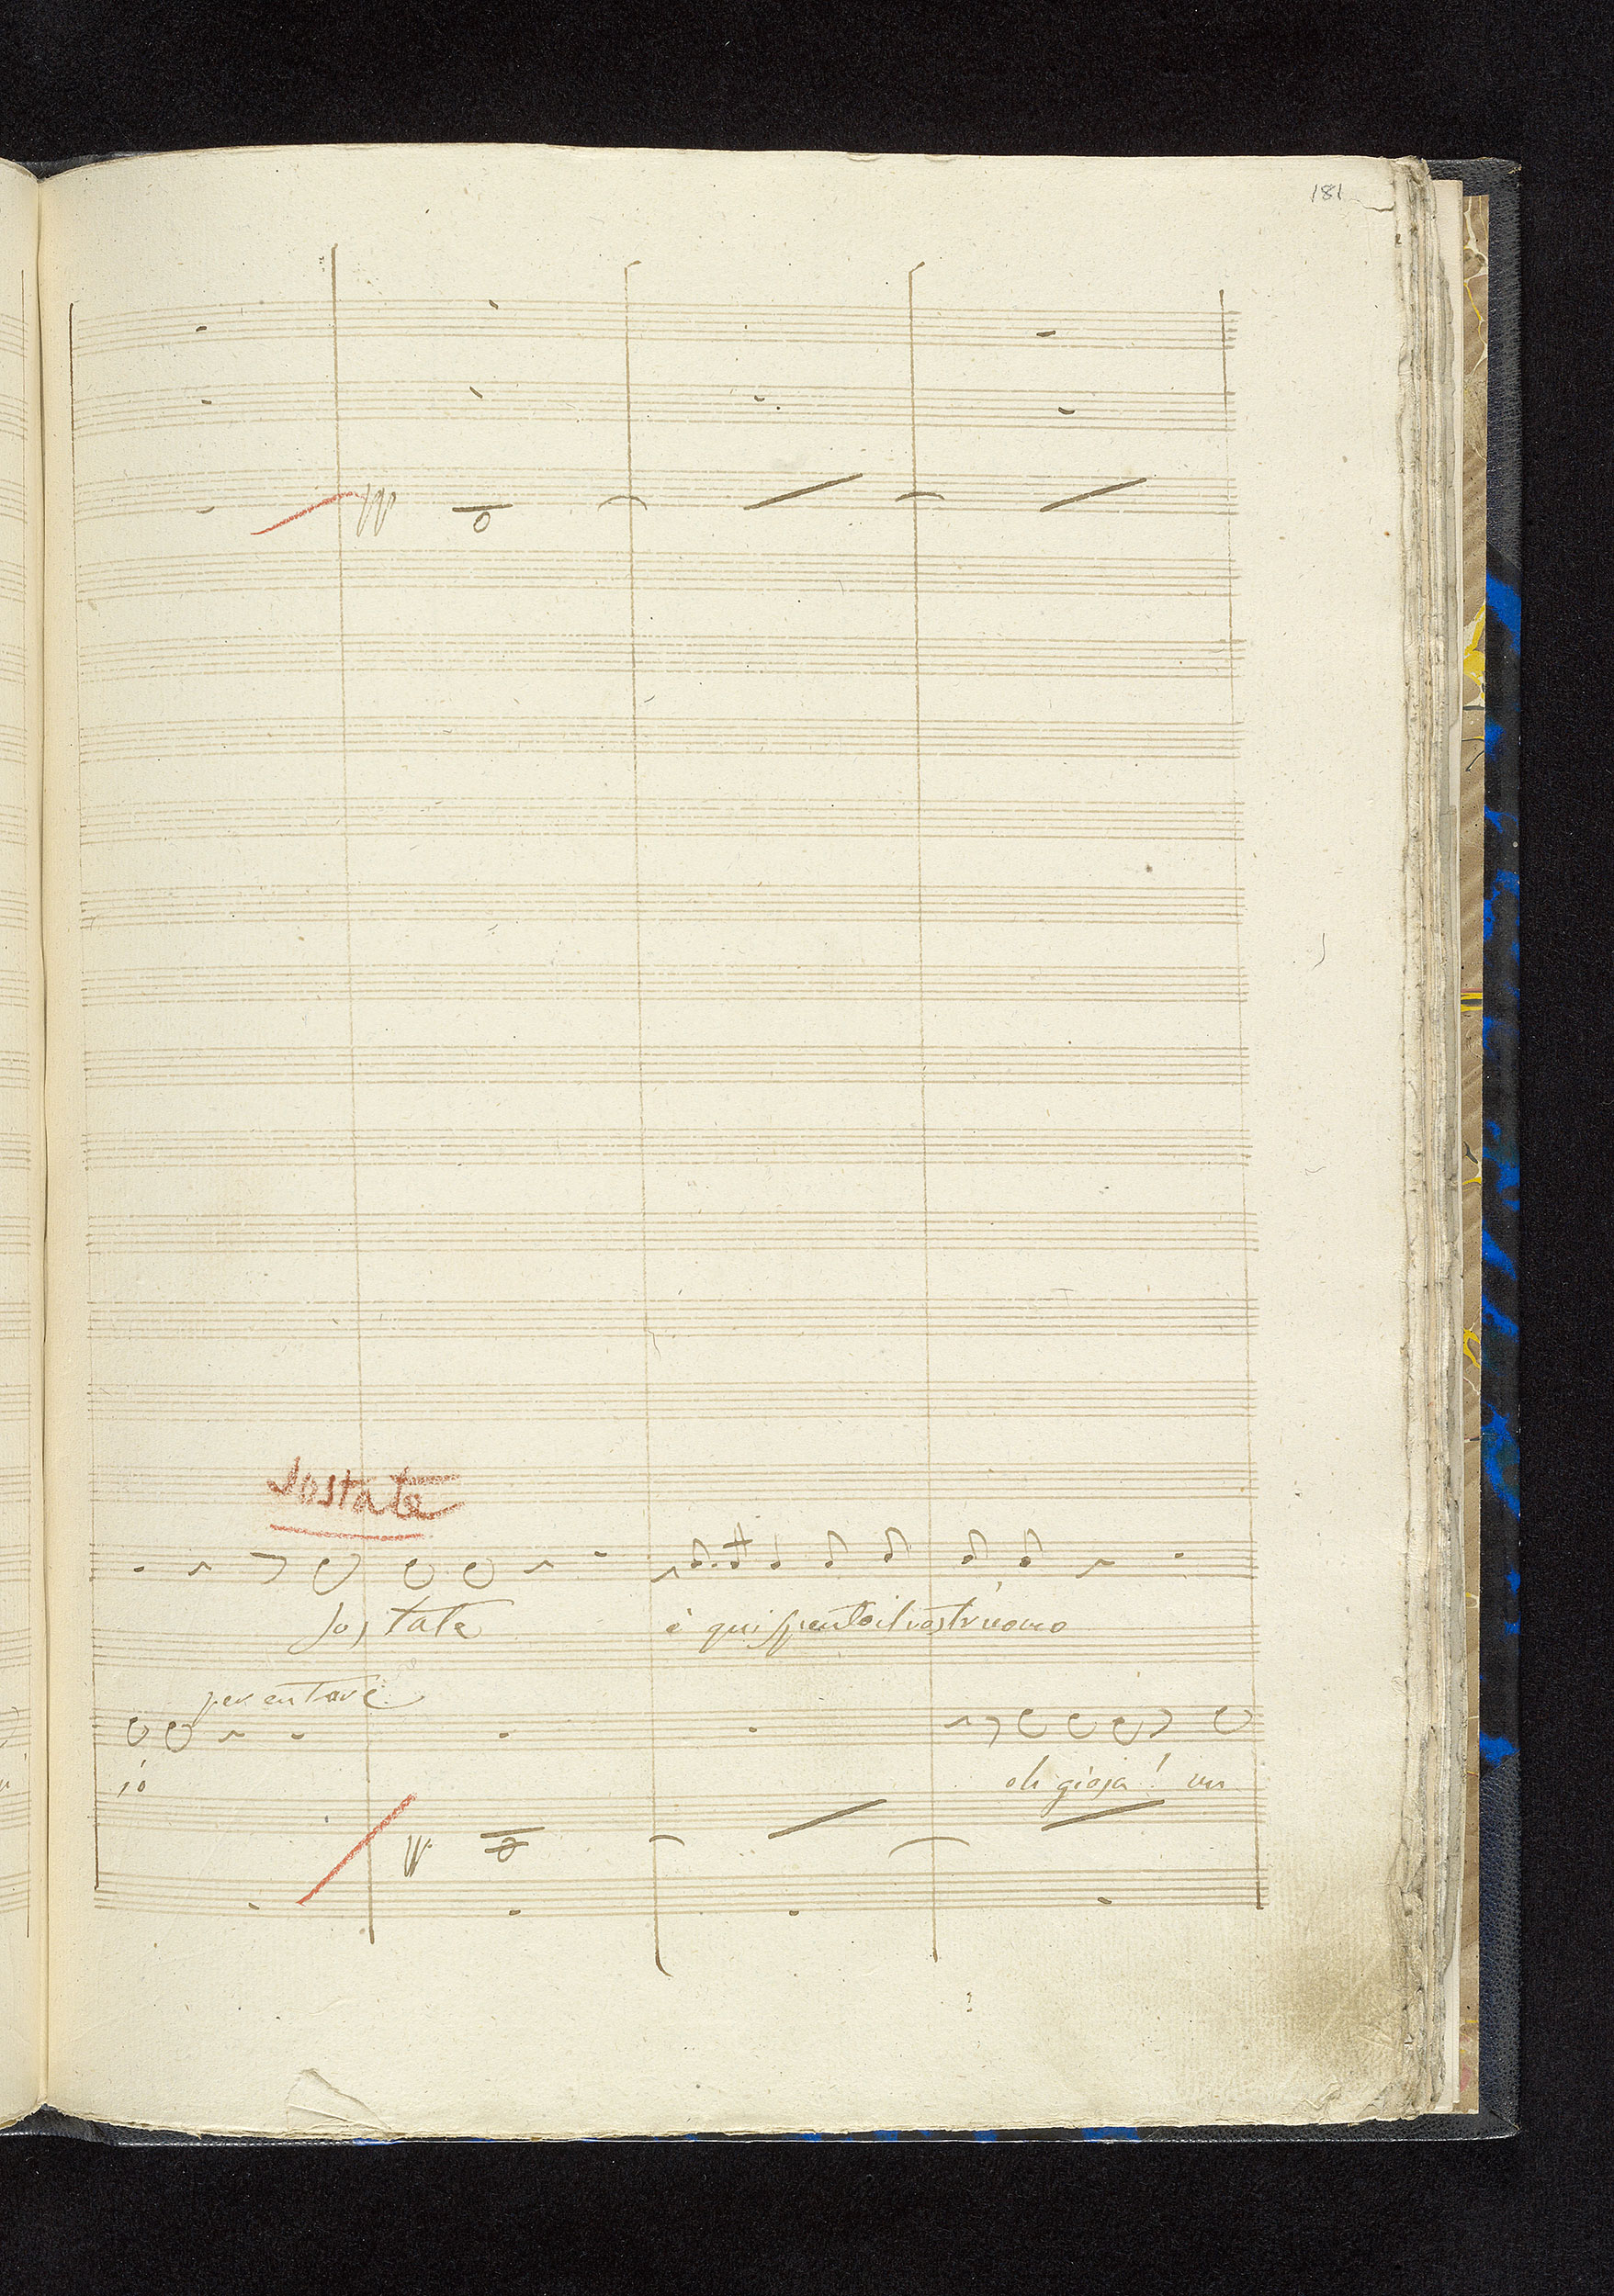 181
Sostate
Sostate è qui spento il vostr'uomo
per entare
io
oh gioja! un